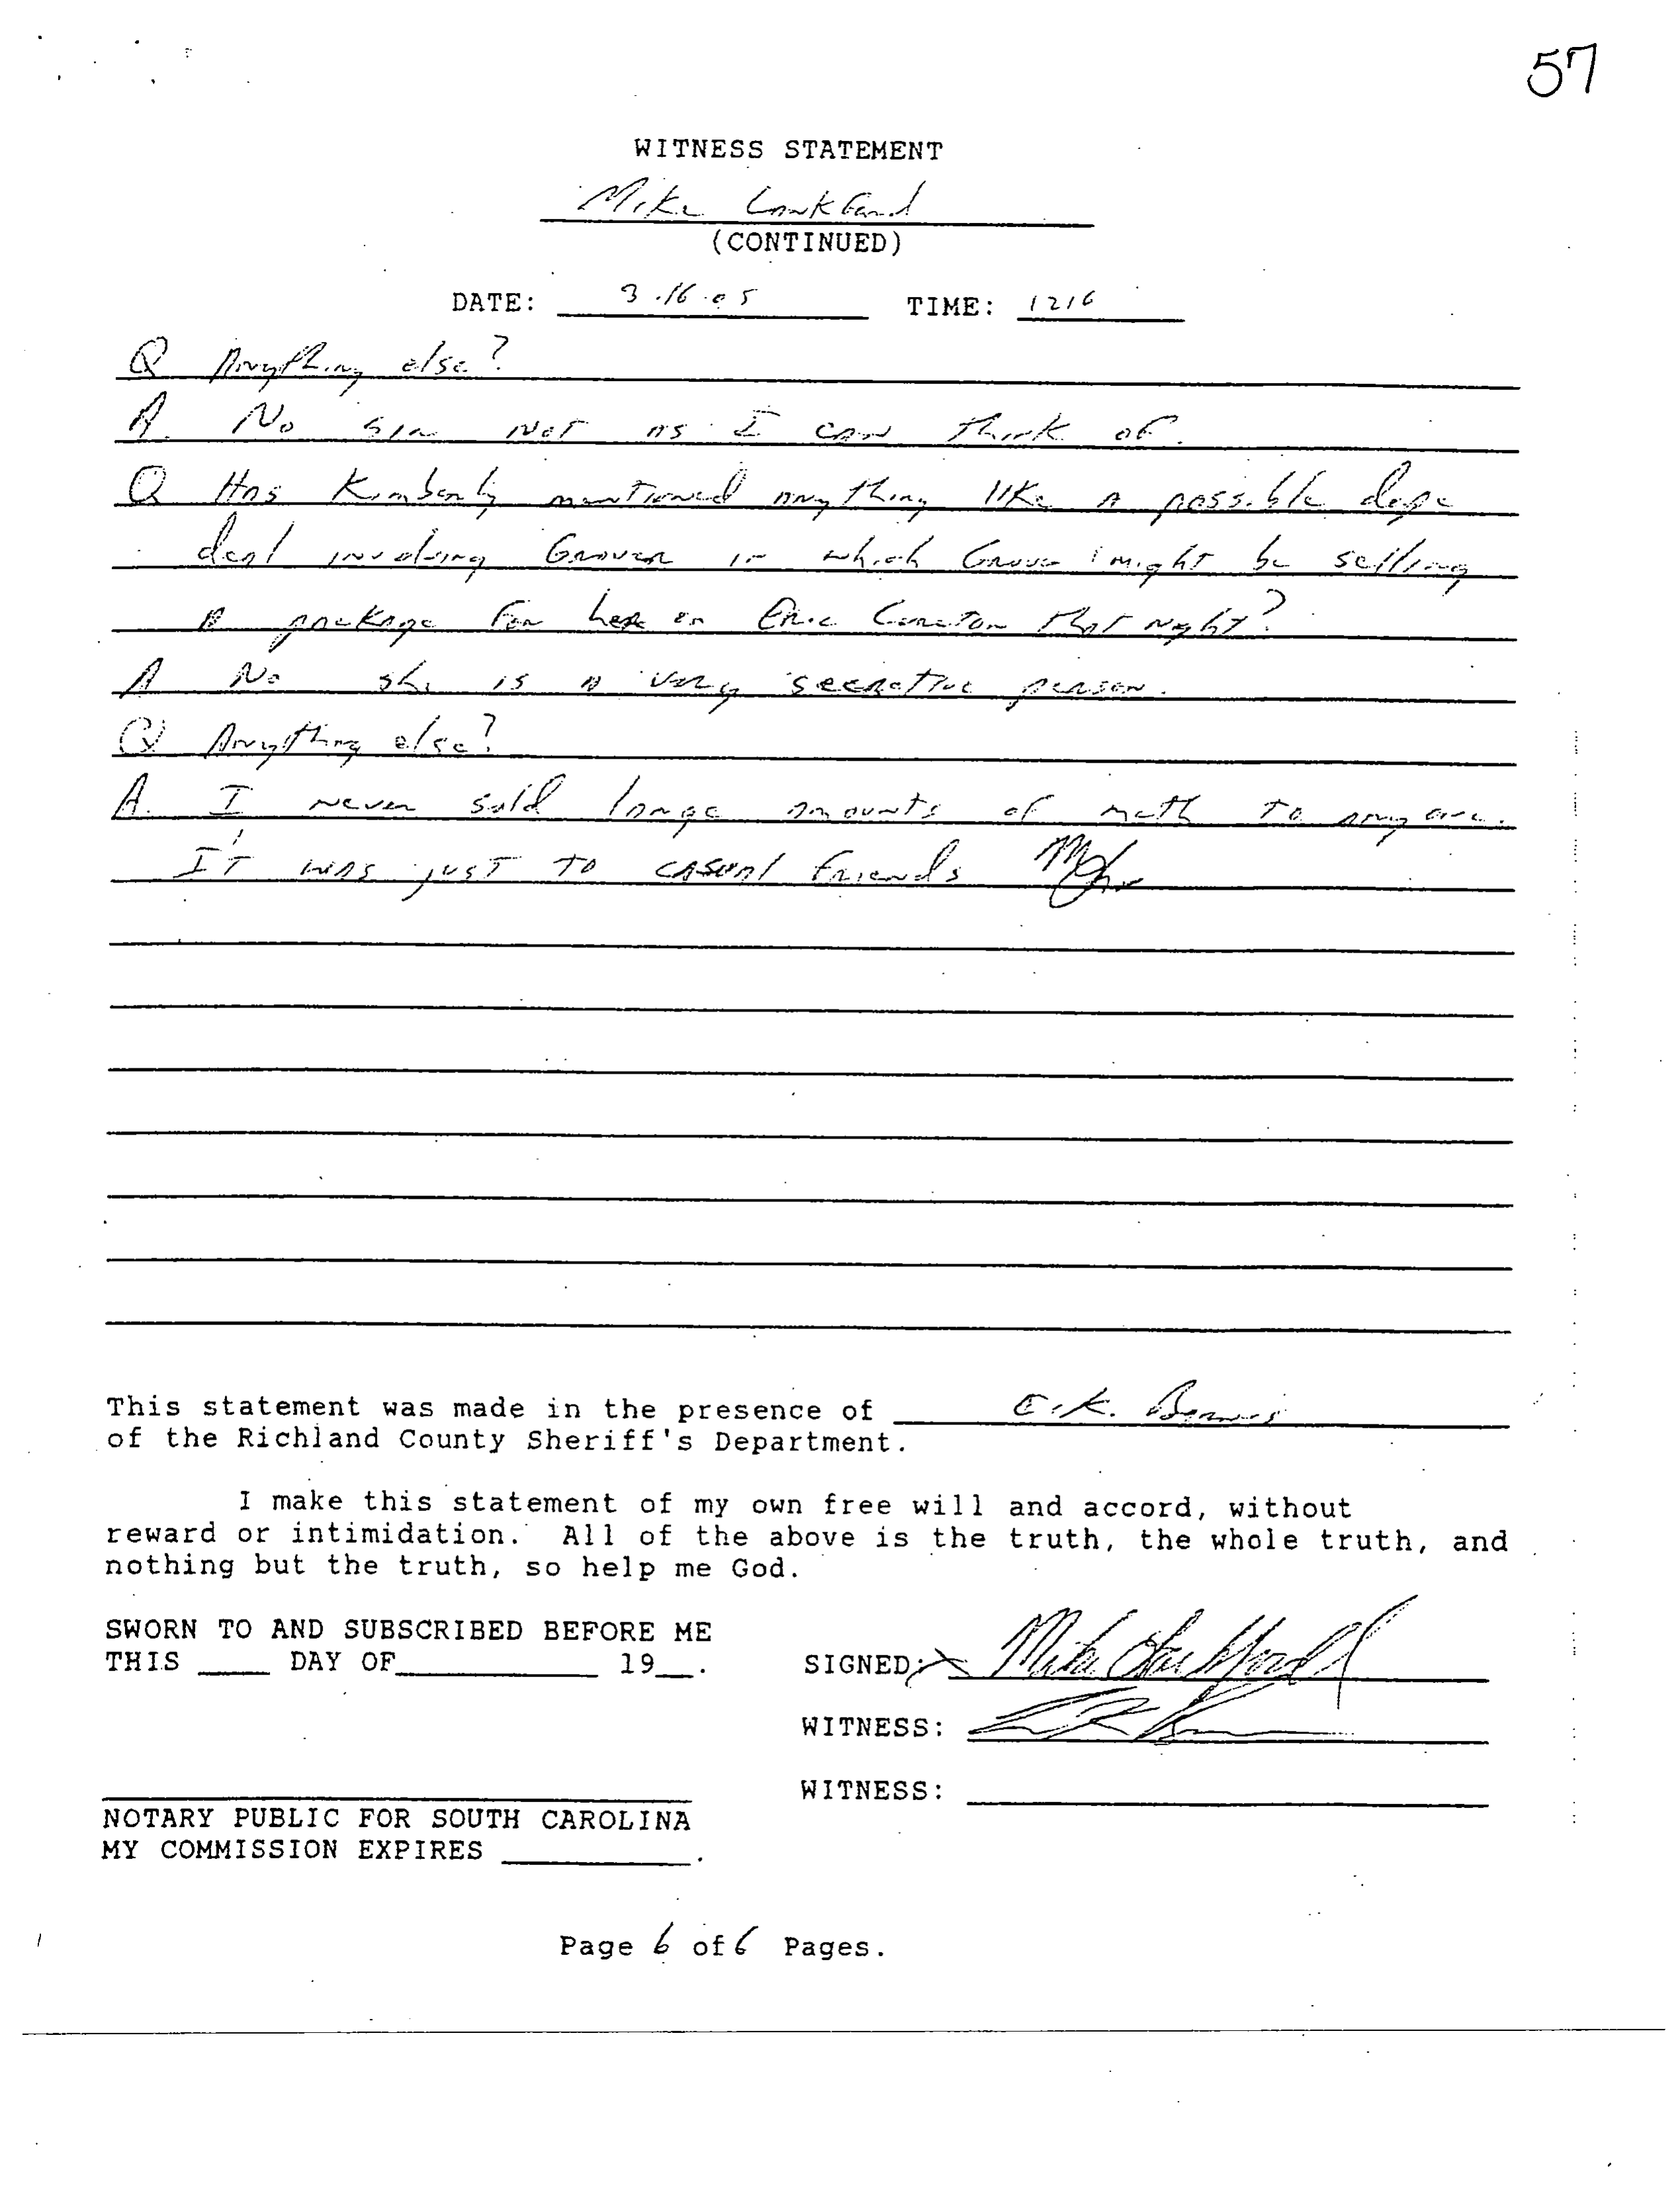 57
WITNESS STATEMENT
Mike
(CONTINUED)
DATE: 3.16.05 TIME: 1216
Q Anything else?
A. No sir not as I can think of.
Q Has Kimberly mentioned anything like a possible dope
deal involving Grover in which Grover might be selling
a package for her or Eric Cureton that night?
A No she is a very secretive person.
Q Anything else?
A. I never sold large amounts of meth to anyone.
It was just to casual friends
This statement was made in the presence of E.K.
of the Richland County Sheriff's Department.
I make this statement of my own free will and accord, without
reward or intimidation. All of the above is the truth, the whole truth, and
nothing but the truth, so help me God.
SWORN TO AND SUBSCRIBED BEFORE ME
THIS ____ DAY OF__________ 19__.
SIGNED: X Mike
WITNESS:
WITNESS:
NOTARY PUBLIC FOR SOUTH CAROLINA
MY COMMISSION EXPIRES __________.
Page 6 of 6 Pages.